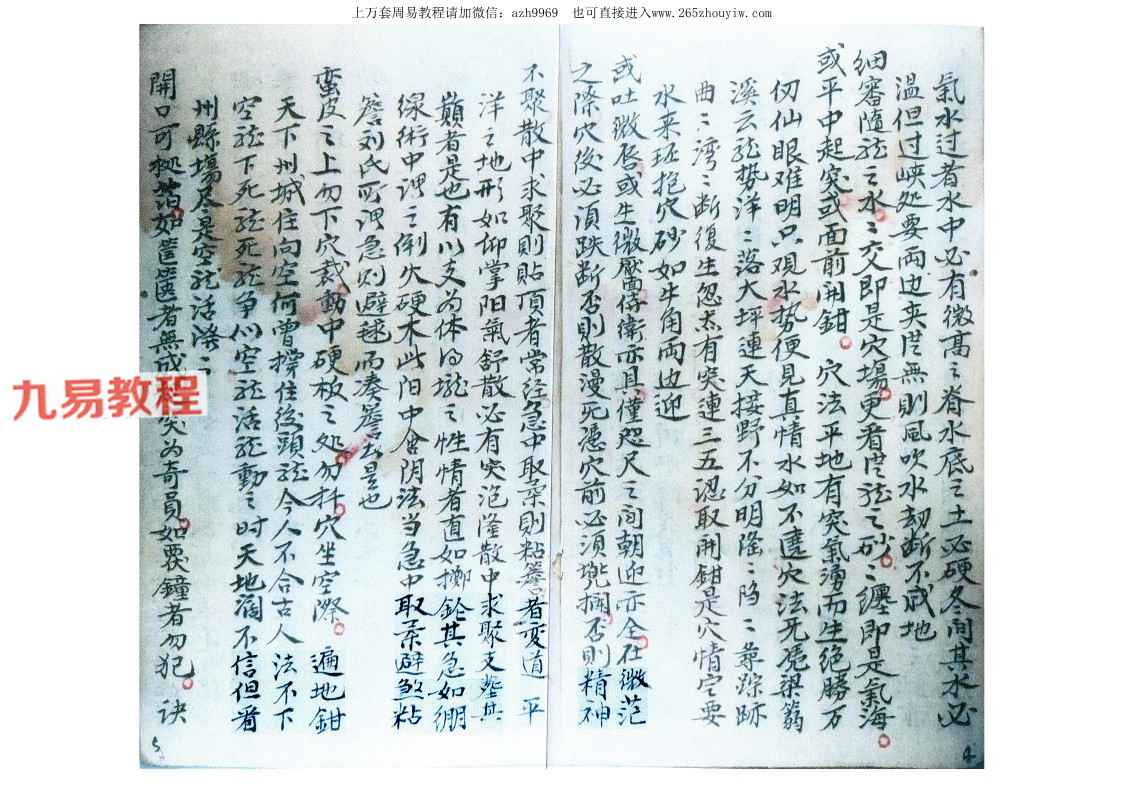 上万套周易教程请加微信：azh9969　也可直接进入www.265zhouyiw.com
氣水过者水中必有微高〻脊水底之土必硬冬间其水必
温但过峡处要両边夹従無則風吹水劫断不成地
细審隨龍之水〻交即是穴場更看從龍之砂〻纏即是氣海
或平中起突或面前開鉗　穴法平地有突氣湧而生絶勝万
仞仙眼难明只观水势便見真情水如不遶穴法无憑梁箬
溪云龍勢洋〻落大坪連天接野不分明隆〻隐〻尋踪跡
曲〻湾〻断復生忽然有突連三五認取開鉗是穴情定要
水来环抱穴砂如牛角両边迎
或吐微唇或生微靨侍衛亦具僅咫尺之间朝迎亦全在微茫
之際穴後必須跌断否則散漫无憑穴前必須兜攔否則精神
不聚散中求聚則貼頂者常经急中取柔則粘簷者变道　平
洋之地形如仰掌阳氣舒散必有突泡隆散中求聚支塟其
巔者是也有以支为体的壠之性情者直如擲鎗其急如绷
線術中謂之倒火硬木此阳中含阴法当急中取柔避煞粘
簷刘氏所謂急则避毬而凑簷去是也
蛮皮之上勿下穴裁動中硬板之处勿扦穴坐空際　遍地鉗
天下州城住向空何曾撐住後頭龍今人不合古人法不下
空龍下死龍死龍争似空龍活龍動之时天地濶不信但看
州縣塲尽是空龍活潑〻
開口可扡
如筐匲者無成
为奇員如覆鐘者勿犯　诀
九易教程
4
5